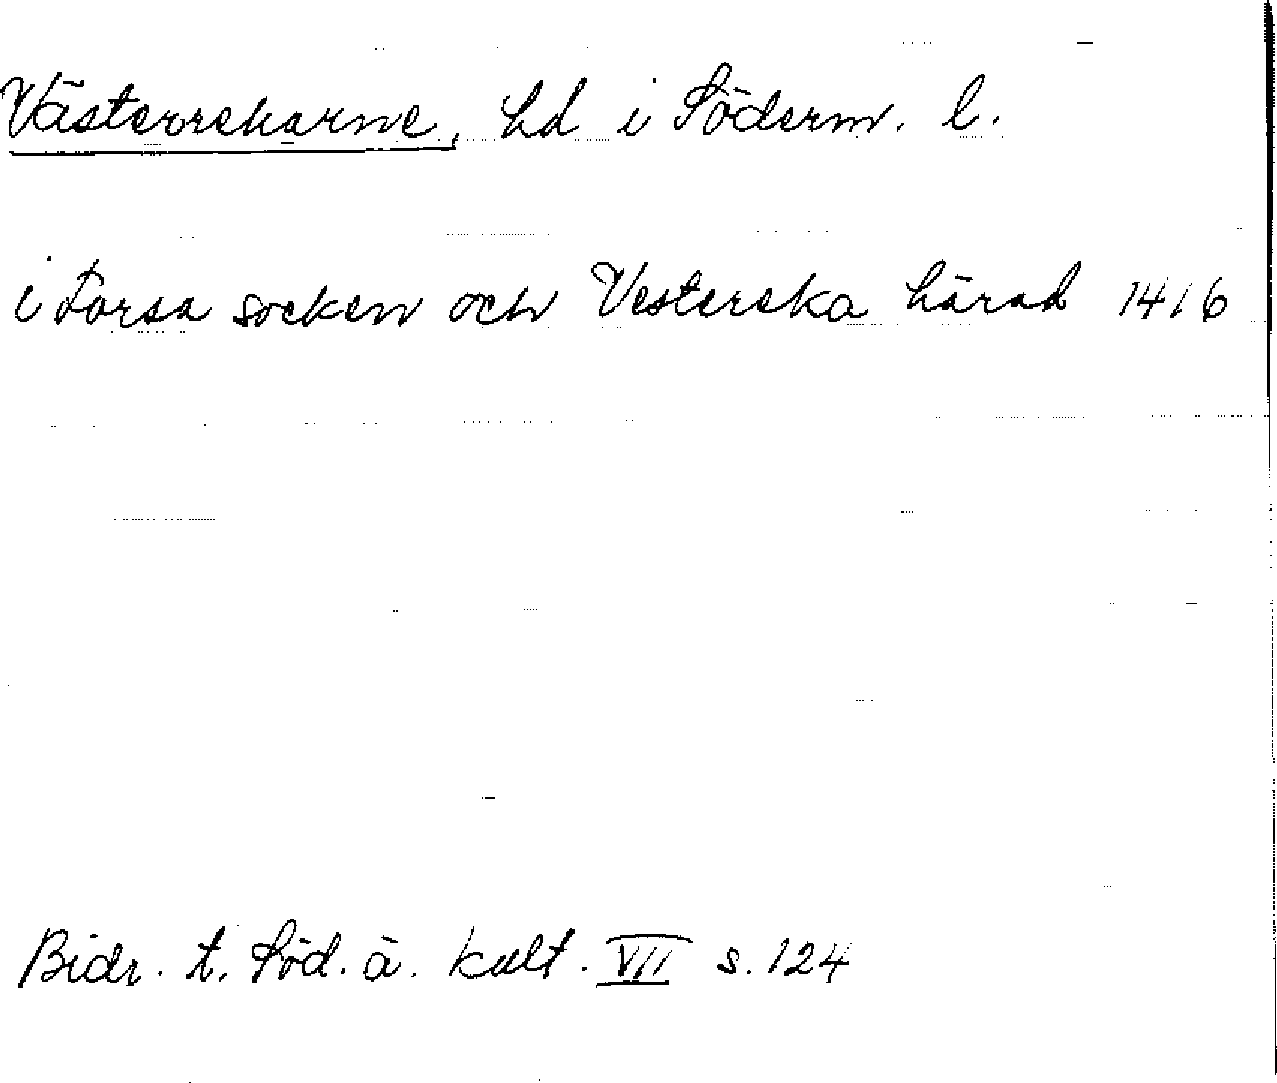 Västerrekarne, hd i Söderm. l.
i Torsa socken och Vestereka härad 1416
Bidr. t. Söd. ä. kult. VII s. 124